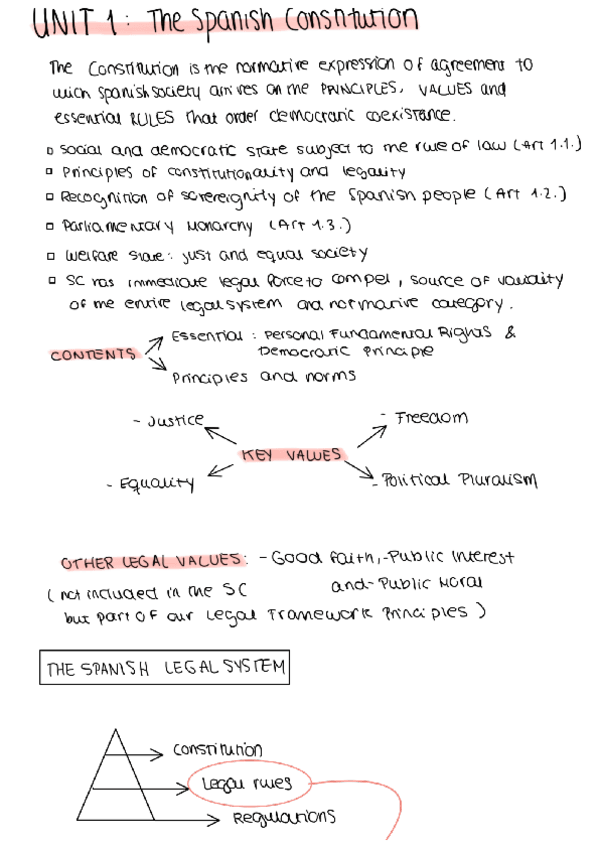 UNIT 1: The Spanish Constitution
The Constitution is the normative expression of agreement to
wich Spanish society arrives on the PRINCIPLES, VALUES and
essential RULES that order democratic coexistance.
▫ Social and democratic state subject to the rule of law (Art 1.1.)
▫ Principles of constitutionality and legality
▫ Recognition of sovereignity of the Spanish people (Art 1.2.)
▫ Parliamentary Monarchy (Art 1.3.)
▫ Welfare State: just and equal society
▫ SC has immediate legal force to compel, source of validity
of the entire legal system and normative category.
CONTENTS
Essential: Personal Fundamental Rights &
Democratic Principle
Principles and norms
- Justice
- Freedom
KEY VALUES
- Equality
- Political Pluralism
OTHER LEGAL VALUES: - Good Faith, - Public Interest
(not included in the SC and - Public Moral
but part of our Legal Framework Principles)
THE SPANISH LEGAL SYSTEM
Constitution
Legal rules
Regulations